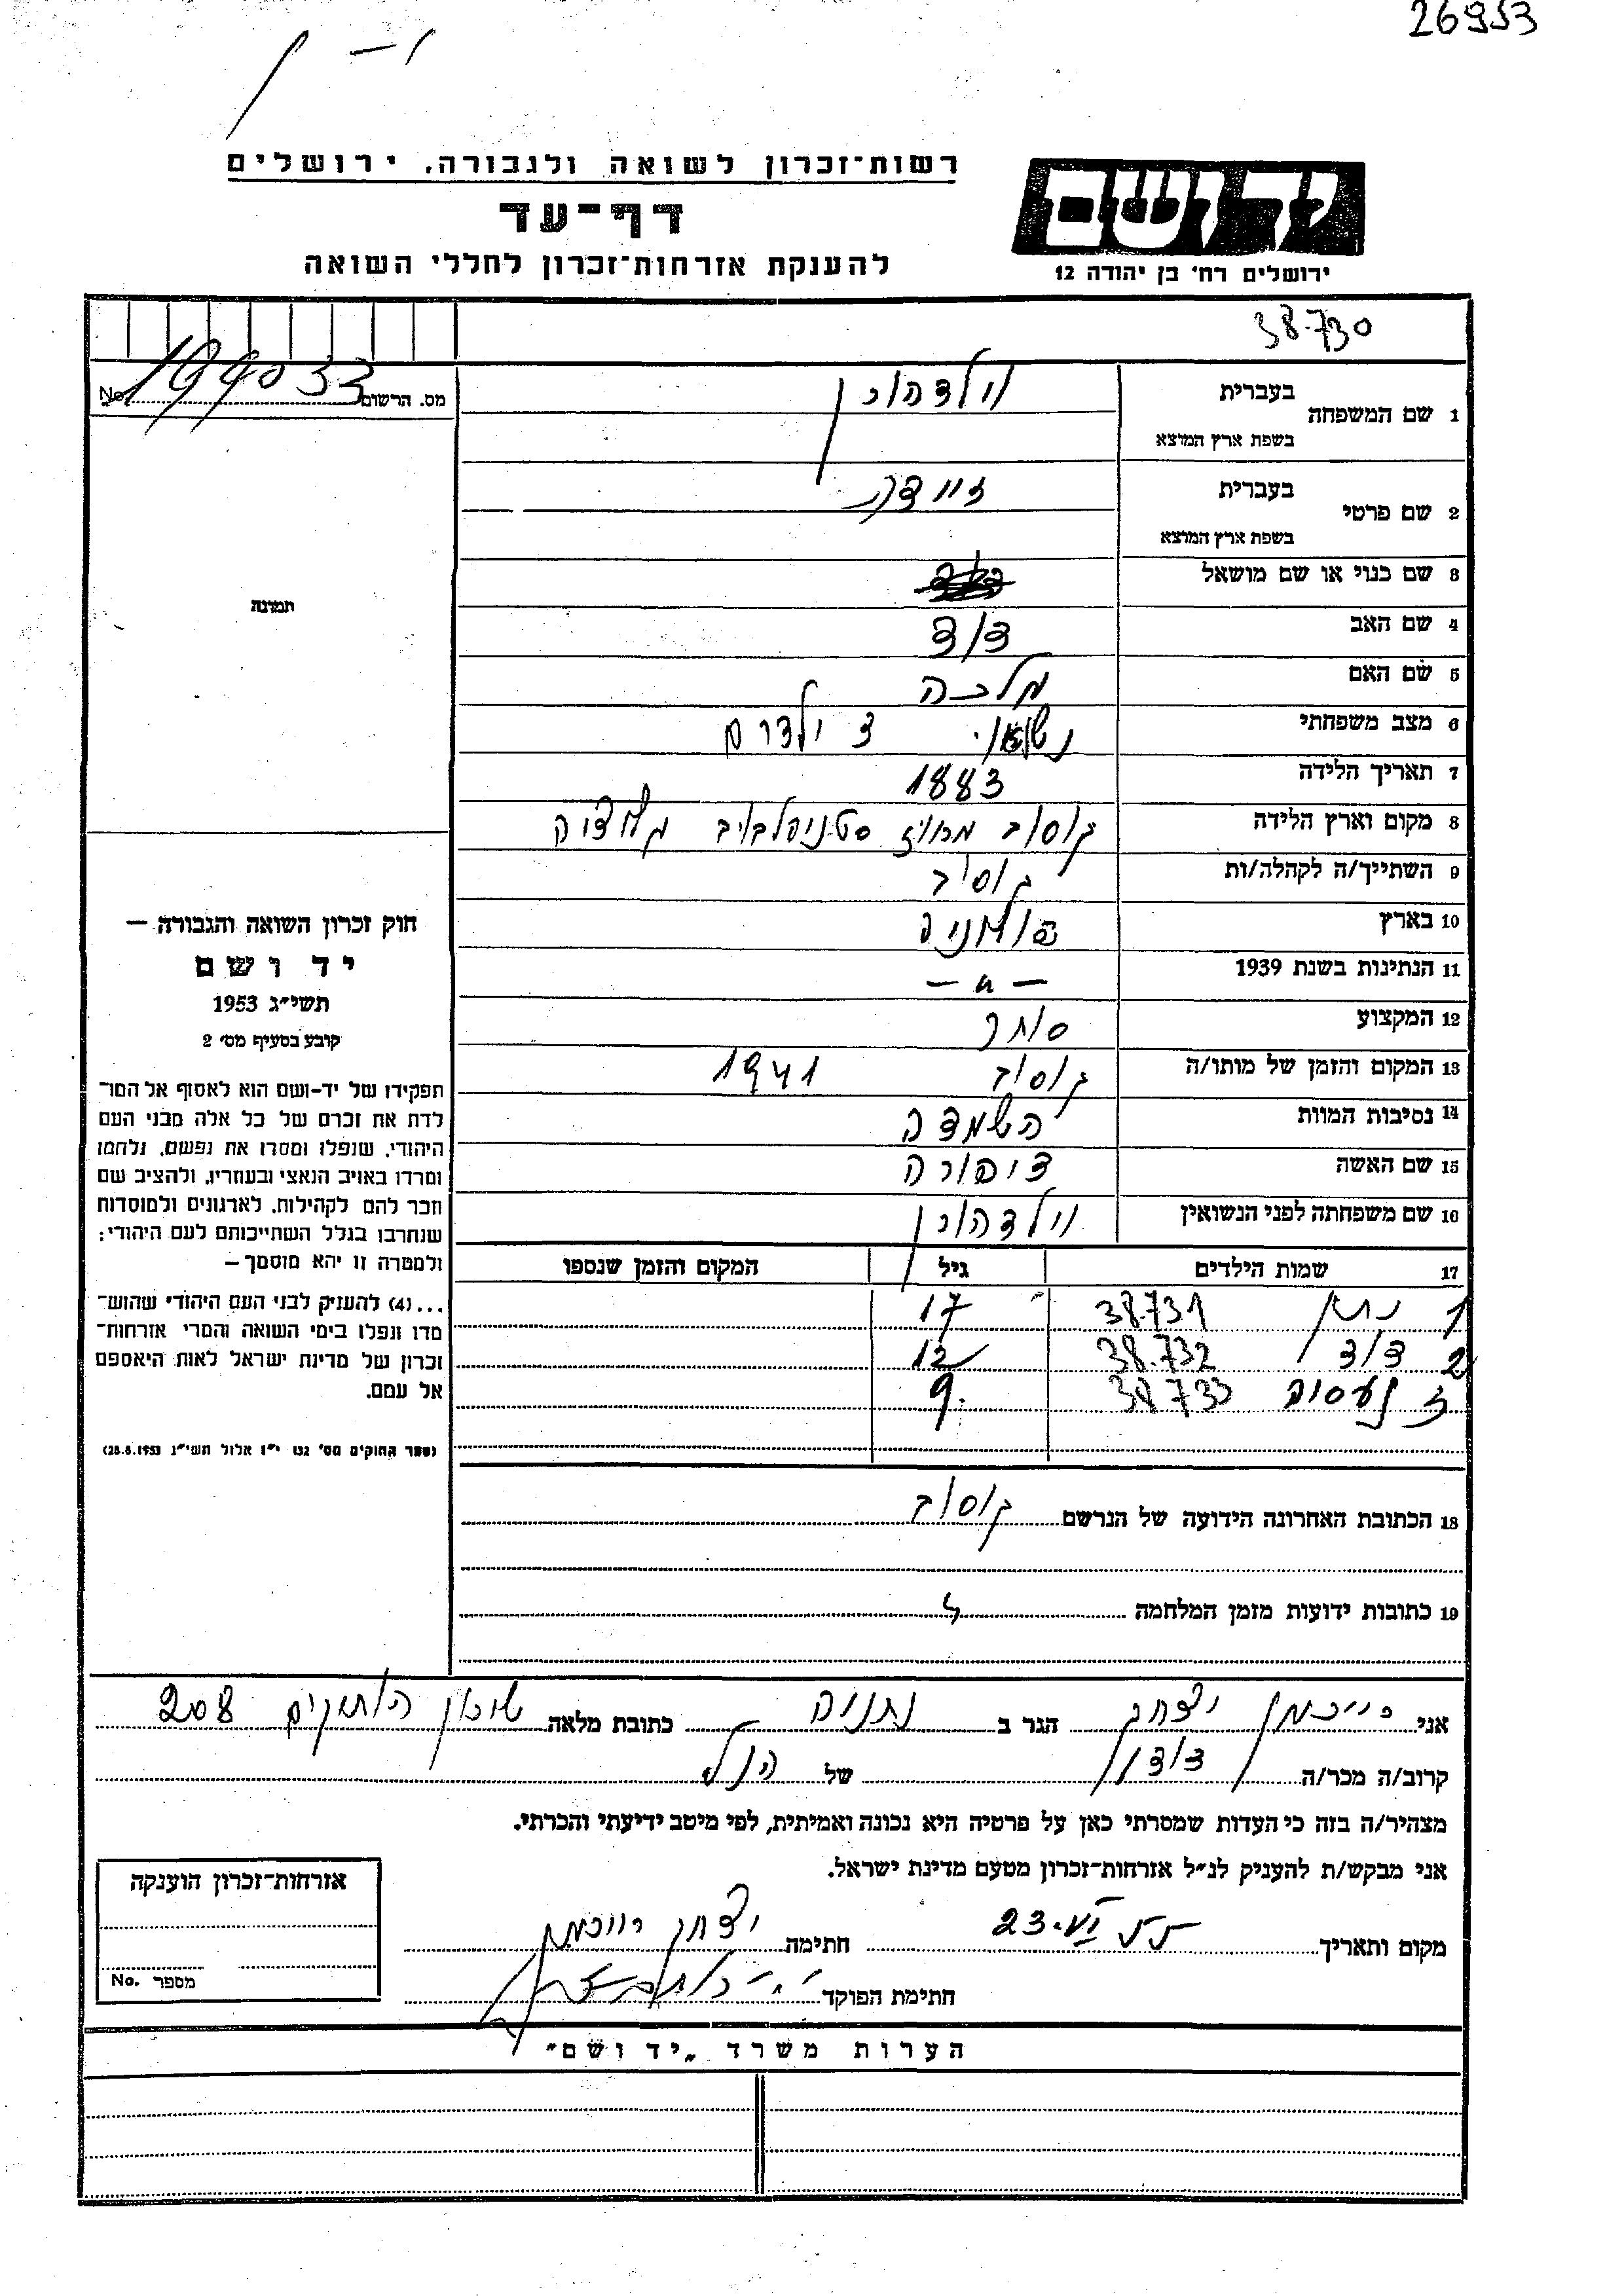 26953
רשות־זכרון לשואה ולגבורה. ירושלים
דף־עד
להענקת אזרחות־זכרון לחללי השואה
יד ושם
ירושלים רח' בן יהודה 12
38.730
No. 194033 מס. הרשום
1 שם המשפחה
בעברית ולדהורן
בשפת ארץ המוצא
2 שם פרטי
בעברית
בשפת ארץ המוצא
3 שם כנוי או שם מושאל
4 שם האב דוד
5 שם האם מלכה
6 מצב משפחתי נשואי 3 ילדים
7 תאריך הלידה 1883
8 מקום וארץ הלידה קוסוב מחוז
9 השתייך/ה לקהלה/ות קוסוב
10 בארץ פולניה
11 הנתינות בשנת 1939 — " —
12 המקצוע סוחר
13 המקום והזמן של מותו/ה קוסוב 1941
14 נסיבות המוות השמדה
15 שם האשה ציפורה
16 שם משפחתה לפני הנשואין ולדהורן
17 שמות הילדים גיל המקום והזמן שנספו
1 נתן 38.731 17
2 דוד 38.732 12
3 38.733 9
18 הכתובת האחרונה הידועה של הנרשם קוסוב
19 כתובות ידועות מזמן המלחמה
תמונה
חוק זכרון השואה והגבורה —
יד ושם
תשי״ג 1953
קובע בסעיף מס' 2
תפקידו של יד-ושם הוא לאסוף אל המו־
לדת את זכרם של כל אלה מבני העם
היהודי, שנפלו ומסרו את נפשם, נלחמו
ומרדו באויב הנאצי ובעוזריו, ולהציב שם
וזכר להם לקהילות, לארגונים ולמוסדות
שנחרבו בגלל השתייכותם לעם היהודי;
ולמטרה זו יהא מוסמך —
...(4) להעניק לבני העם היהודי שהוש־
מדו ונפלו בימי השואה והמרי אזרחות־
זכרון של מדינת ישראל לאות היאספם
אל עמם.
(ספר החוקים מס' 132 י״ז אלול תשי״ג 28.8.1953)
אני רייכמן יצחק הגר ב נתניה כתובת מלאה שיכון הותיקים 208
קרוב/ה מכר/ה דודן של הנ״ל
מצהיר/ה בזה כי העדות שמסרתי כאן על פרטיה היא נכונה ואמיתית, לפי מיטב ידיעתי והכרתי.
אני מבקש/ת להעניק לנ״ל אזרחות־זכרון מטעם מדינת ישראל.
מקום ותאריך 23.VI 55 חתימה יצחק רייכמן
חתימת הפוקד
אזרחות־זכרון הוענקה
מספר No.
הערות משרד „יד ושם״